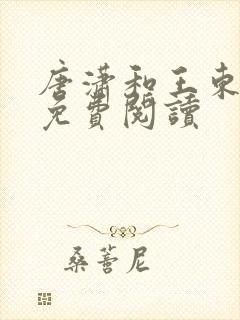 唐瀟和王東
免費閱讀
桑薈尼